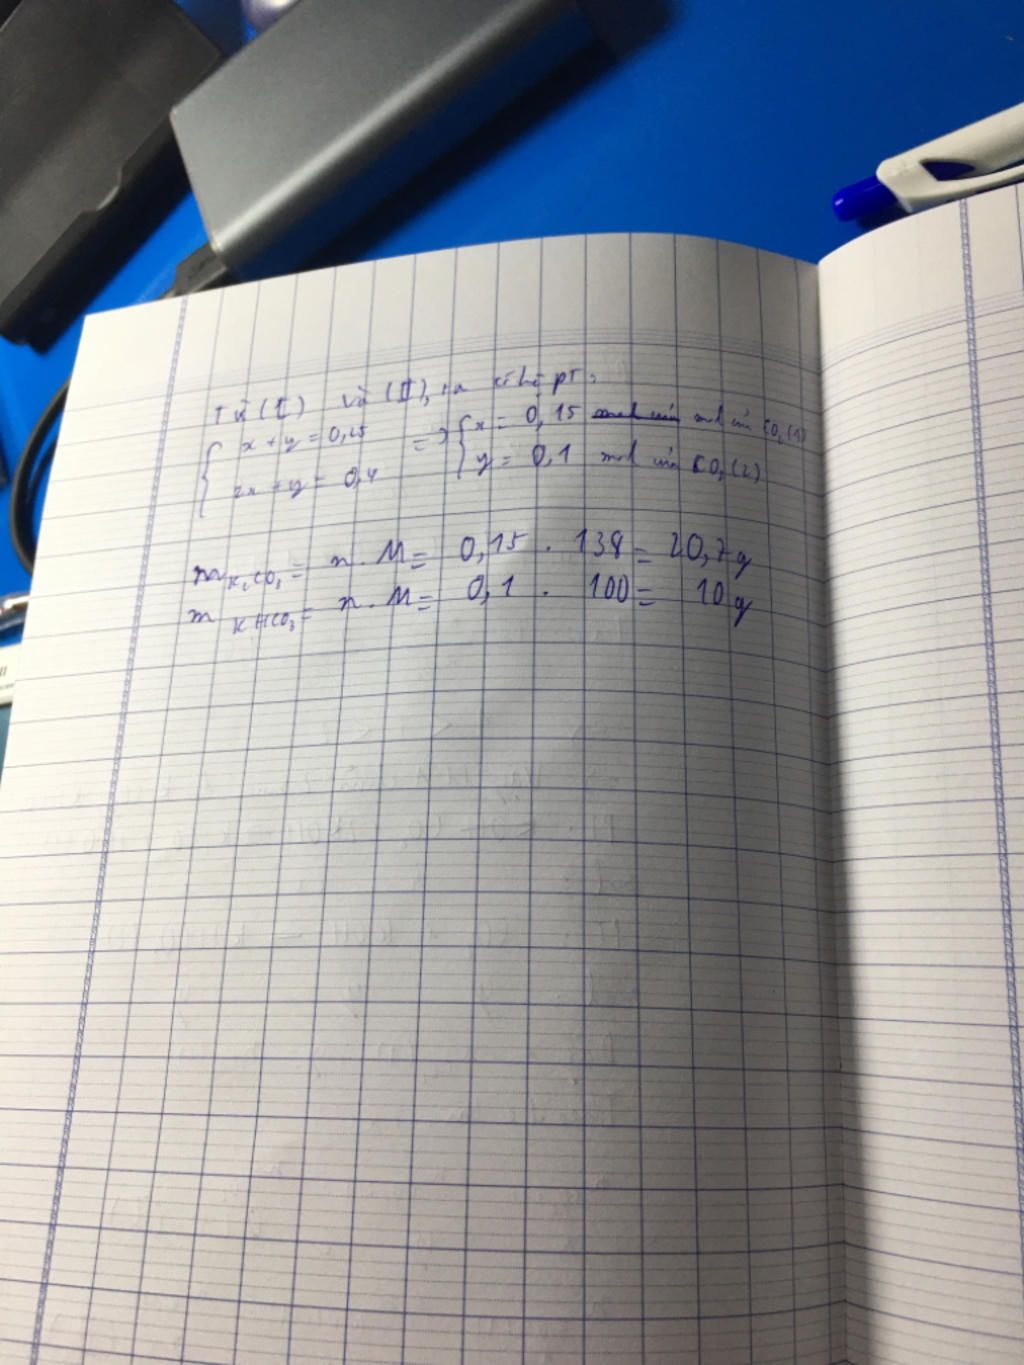 Từ (I) và (II), ta có hệ pt:
{ x + y = 0,25 => { x = 0,15 mol của CO₂(1)
2x + y = 0,4 y = 0,1 mol của CO₂(2)
m K₂CO₃ = n . M = 0,15 . 138 = 20,7 g
m KHCO₃ = n . M = 0,1 . 100 = 10 g